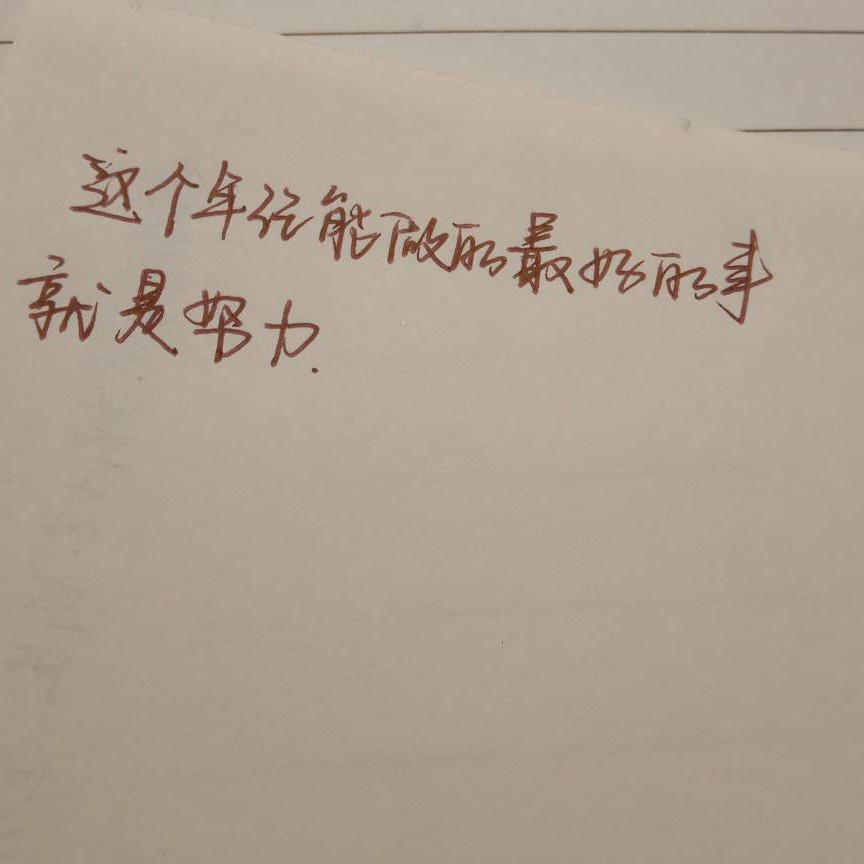 这个年纪能做的最好的事
就是努力.